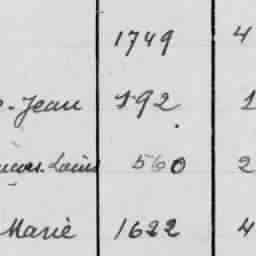 1749 4
Jean 192 1
Louis 560 2
Marie 1622 4